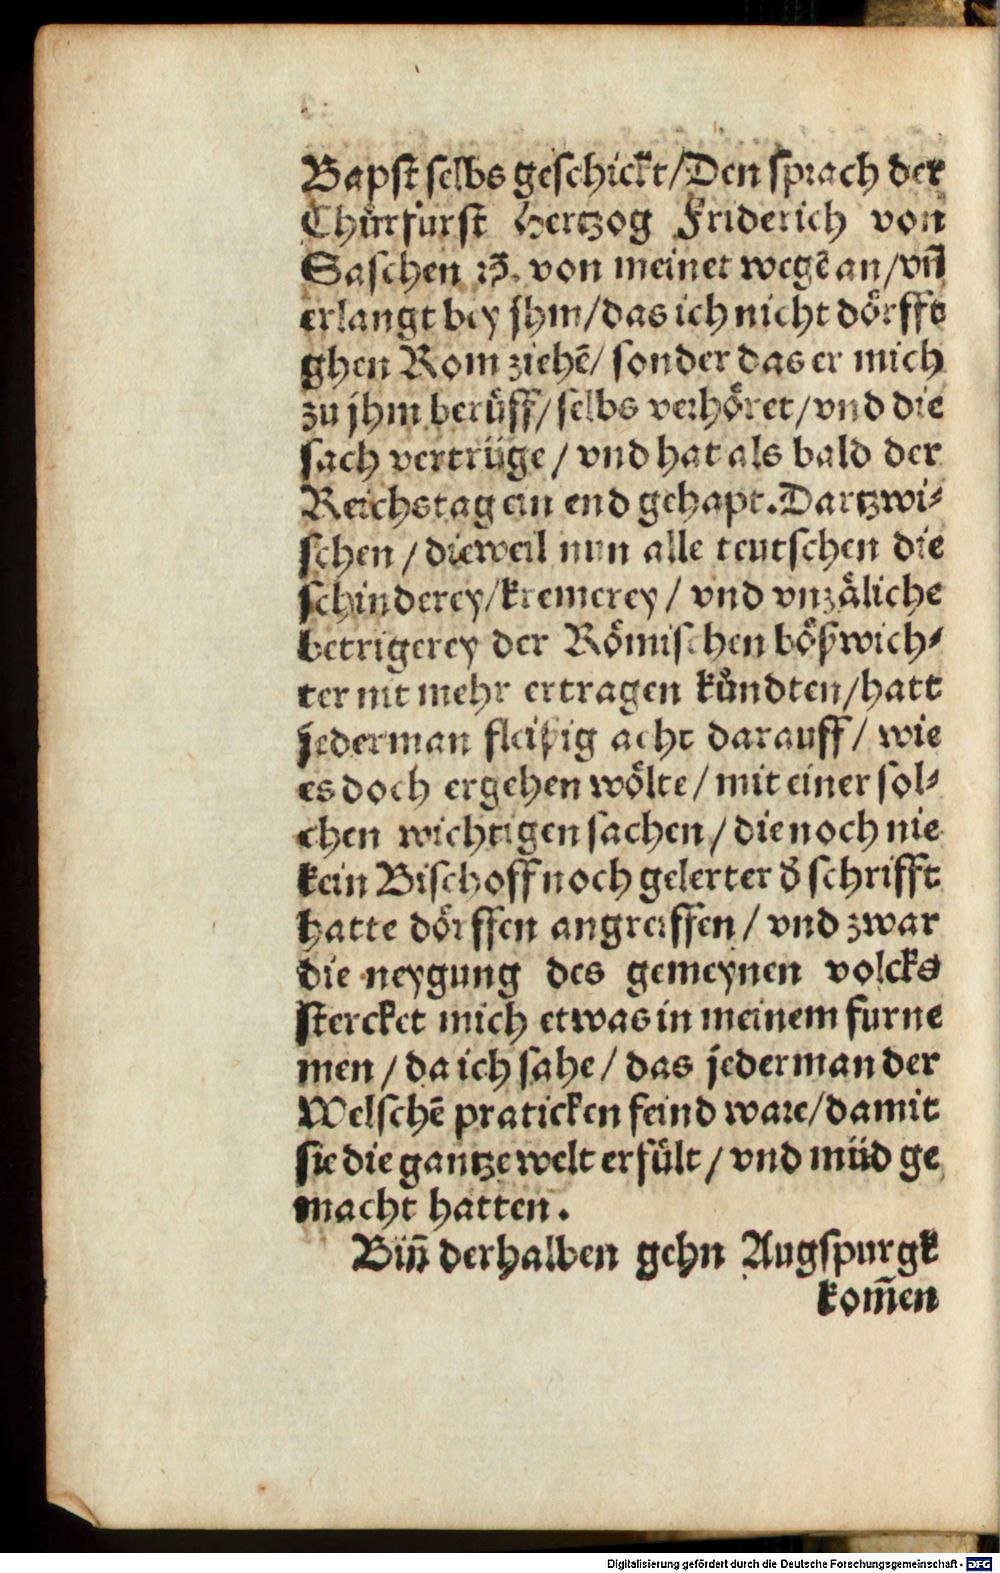 Bapst selbs geschickt/Den sprach der
Chůrfurst Hertzog Friderich von
Saschen ꝛc̄. von meinet wegē an/vn̄
erlangt bey jhm/das ich nicht dörffte
ghen Rom ziehē/ sonder das er mich
zu jhm berüff/selbs verhöret/vnd die
sach vertrüge/ vnd hat als bald der
Reichstag ein end gehapt.Dartzwi⸗
schen/ dieweil nun alle teutschen die
schinderey/kremerey/ vnd vnzäliche
betrigerey der Römischen bößwich⸗
ter nit mehr ertragen kůndten/hatt
jederman fleißig acht darauff/ wie
es doch ergehen wölte/ mit einer sol⸗
chen wichtigen sachen/ die noch nie
kein Bischoff noch gelerter d̕ schrifft
hatte dörffen angreiffen/ vnd zwar
die neygung des gemeynen volcks
stercket mich etwas in meinem furne
men/ da ich sahe/ das jederman der
Welschē praticken feind ware/damit
sie die gantze welt erfült/ vnd müd ge
macht hatten.
Bin̄ derhalben gehn Augspurgk
kom̄en
Digitalisierung gefördert durch die Deutsche Forschungsgemeinschaft - DFG